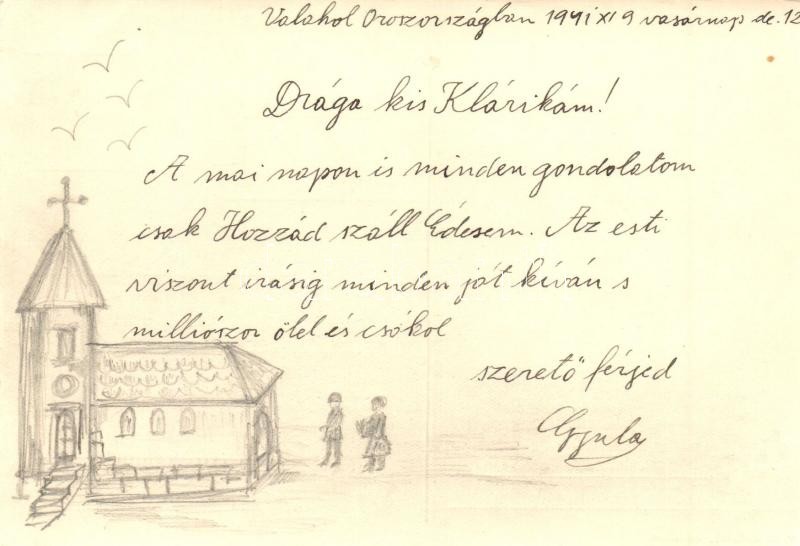 Valahol Oroszországban 1941 XI 9 vasárnap de. 12
Drága kis Klárikám!
A mai napon is minden gondolatom
csak Hozzád száll Édesem. Az esti
viszont irásig minden jót kíván s
milliószor ölel és csókol
szerető férjed
Gyula